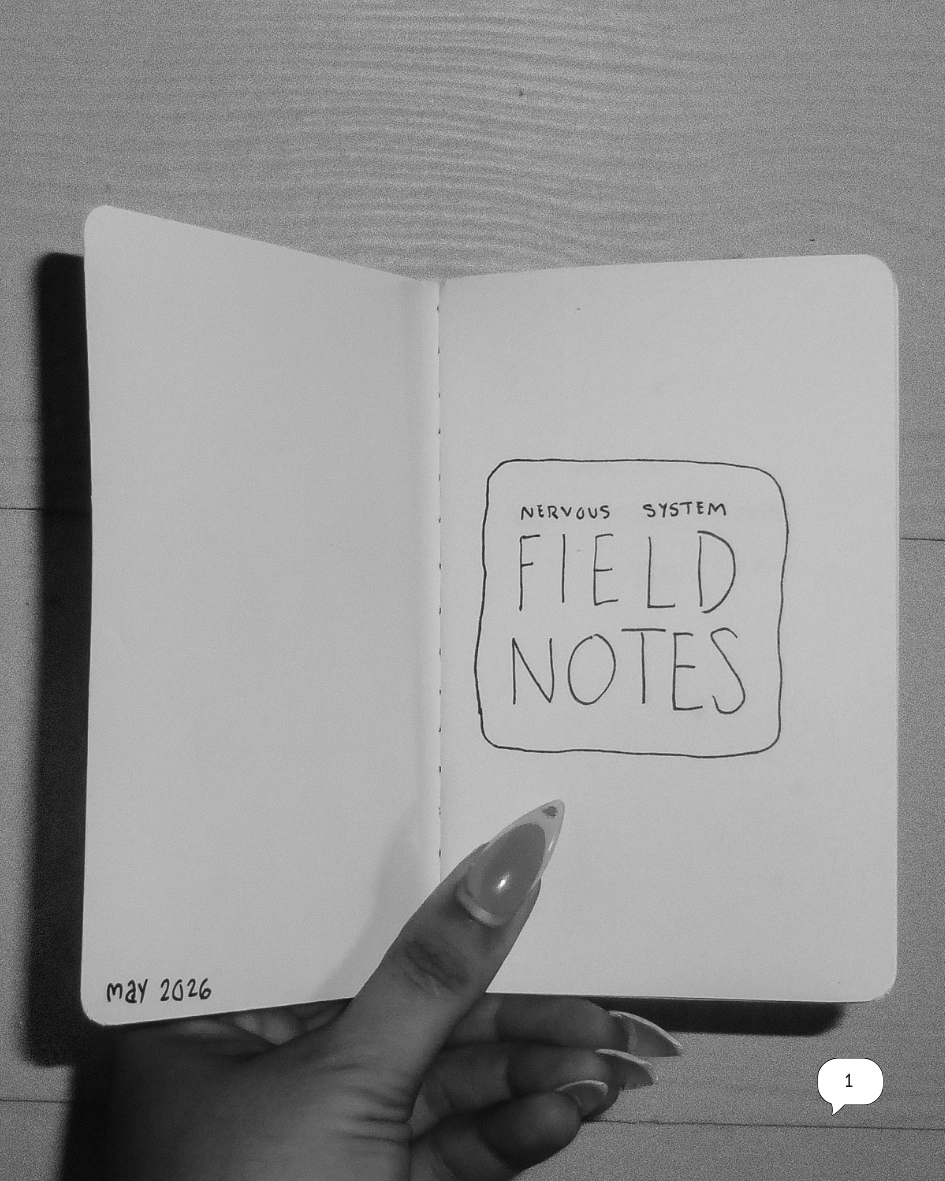 NERVOUS SYSTEM
FIELD
NOTES
may 2026
1